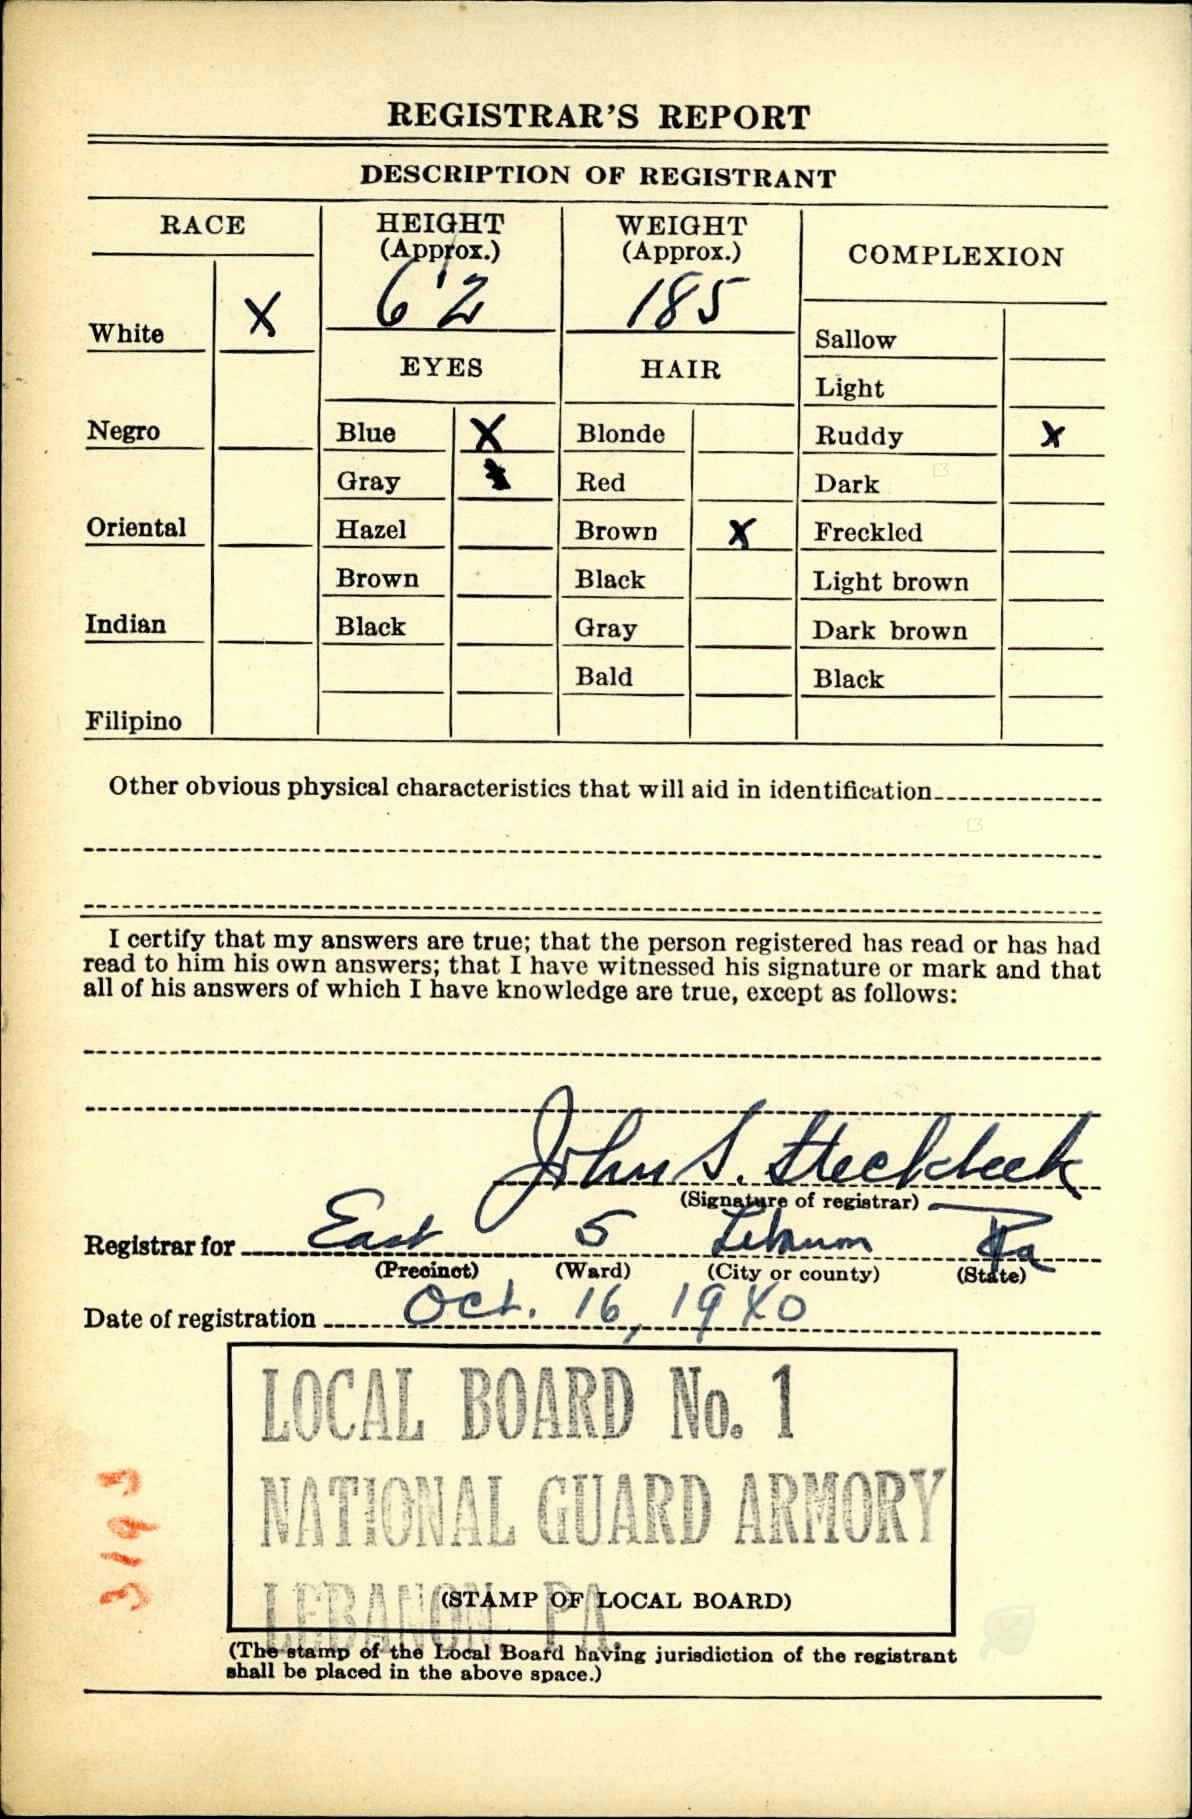 REGISTRAR'S REPORT
DESCRIPTION OF REGISTRANT
RACE
HEIGHT
(Approx.)
WEIGHT
(Approx.)
COMPLEXION
6'2
185
White X
Sallow
EYES
HAIR
Light
Negro
Blue X
Blonde
Ruddy X
Gray
Red
Dark
Oriental
Hazel
Brown X
Freckled
Brown
Black
Light brown
Indian
Black
Gray
Dark brown
Bald
Black
Filipino
Other obvious physical characteristics that will aid in identification
I certify that my answers are true; that the person registered has read or has had
read to him his own answers; that I have witnessed his signature or mark and that
all of his answers of which I have knowledge are true, except as follows:
John S. Steckbeck
(Signature of registrar)
Registrar for East 5 Lebanon Pa
(Precinct) (Ward) (City or county) (State)
Date of registration Oct. 16, 1940
LOCAL BOARD No. 1
NATIONAL GUARD ARMORY
LEBANON, PA.
(STAMP OF LOCAL BOARD)
(The stamp of the Local Board having jurisdiction of the registrant
shall be placed in the above space.)
3193